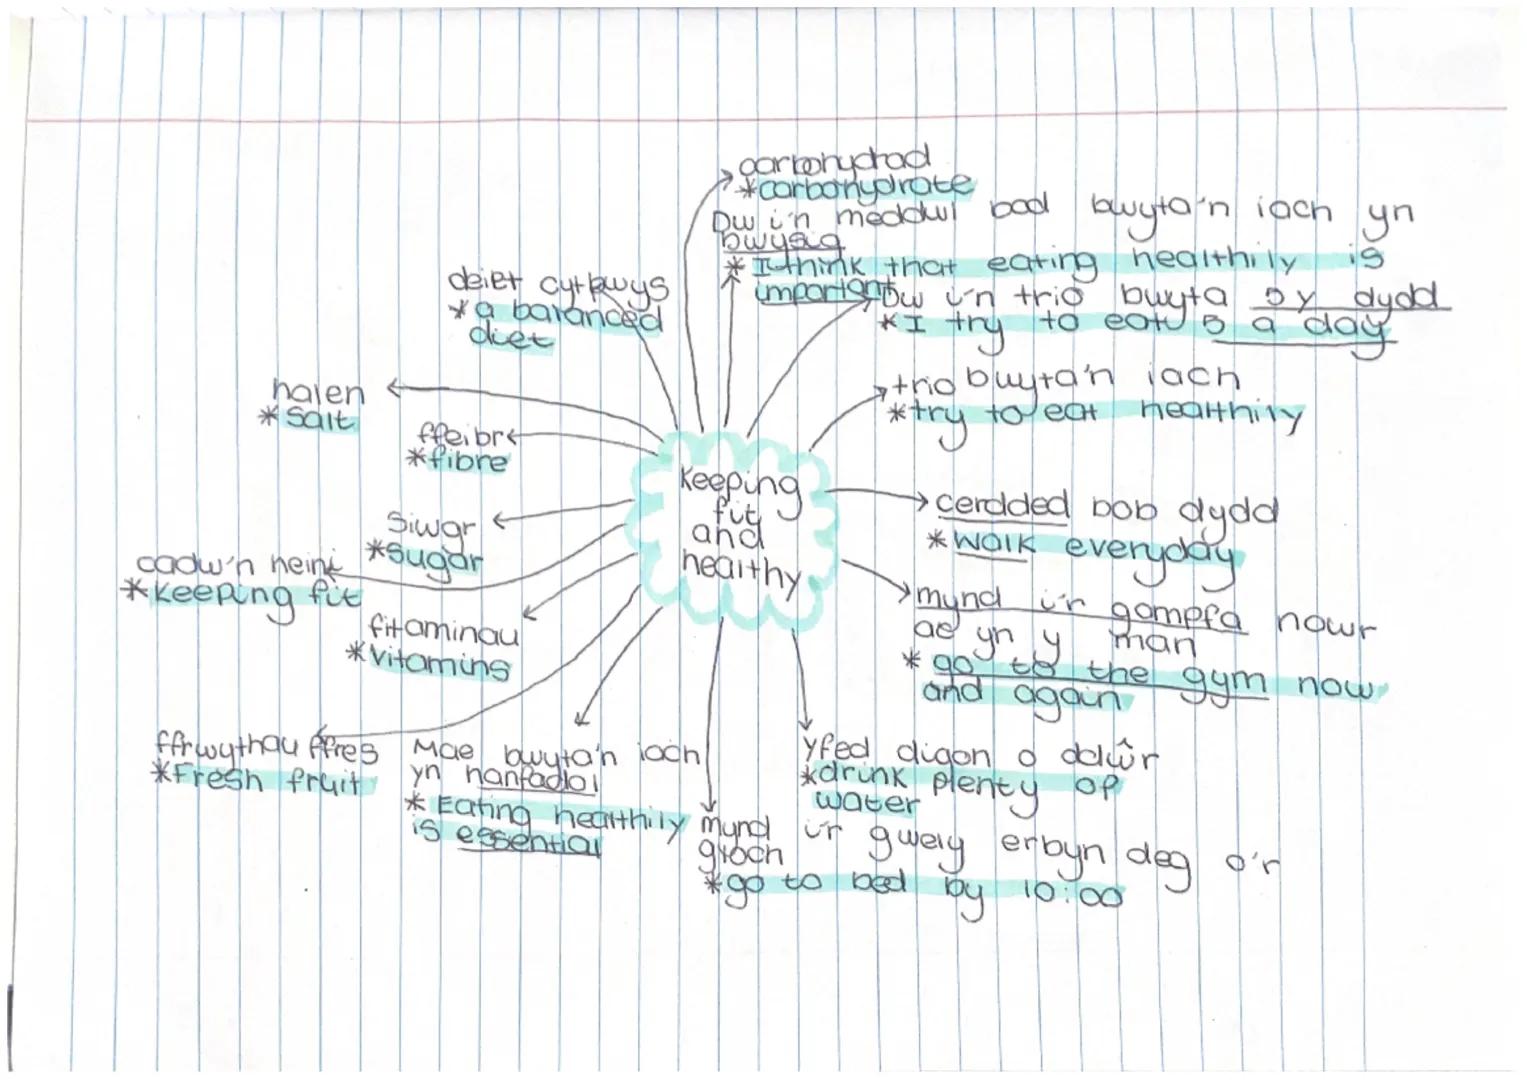 carbohydrad
*carbohydrate
Dw i'n meddwl bod bwyta'n iach yn
bwysig
* I think that eating healthily is
important
Dw i'n trio bwyta 5 y dydd
*I try to eat 5 a day
trio bwyta'n iach
*try to eat healthily
cerdded bob dydd
*walk everyday
mynd i'r gampfa nawr
ac yn y man
* go to the gym now
and again
yfed digon o ddŵr
*drink plenty of
water
mynd i'r gwely erbyn deg o'r
gloch
*go to bed by 10:00
Mae bwyta'n iach
yn hanfodol
* Eating healthily
is essential
ffrwythau ffres
*Fresh fruit
fitaminau
*vitamins
cadw'n heini
*keeping fit
siwgr
*sugar
ffeibr
*fibre
halen
*salt
deiet cytbwys
*a balanced
diet
Keeping
fit
and
healthy